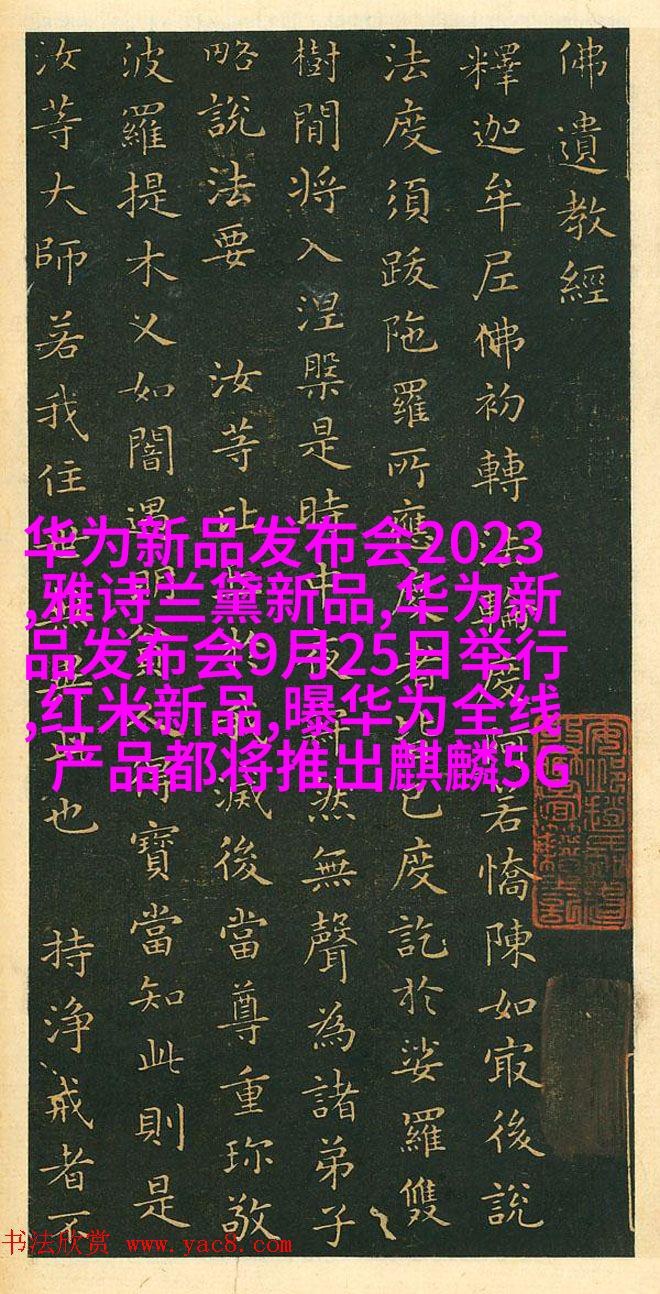 佛遺教經
釋迦牟尼佛初轉法輪度阿若憍陳如冣後說
法度須跋陁羅所應度者皆已度訖於娑羅雙
樹間将入涅槃是時中夜寂然無聲為諸弟子
略說法要 汝等比丘於我滅後當尊重珎敬
波羅提木叉如闇遇明貧人得寶當知此則是
汝等大師若我住世無異此也 持浄戒者不
华为新品发布会2023
,雅诗兰黛新品,华为新
品发布会9月25日举行
,红米新品,曝华为全线
产品都将推出麒麟5G
书法欣赏 www.yac8.com